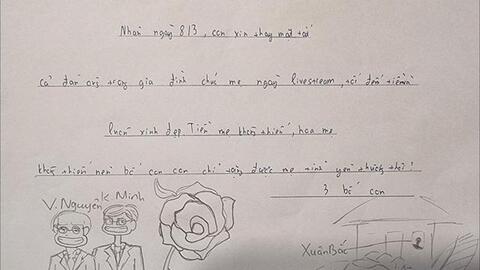 Nhân ngày 8/3, con xin thay mặt tất
cả đàn ông trong gia đình chúc mẹ ngày livestream, tối đếm tiền
luôn xinh đẹp. Tiền mẹ không thiếu, hoa mẹ
không thiếu nên bố con con chỉ tặng được mẹ tình yêu thương thôi!
3 bố con
V. Nguyên
K Minh
Xuân Bắc